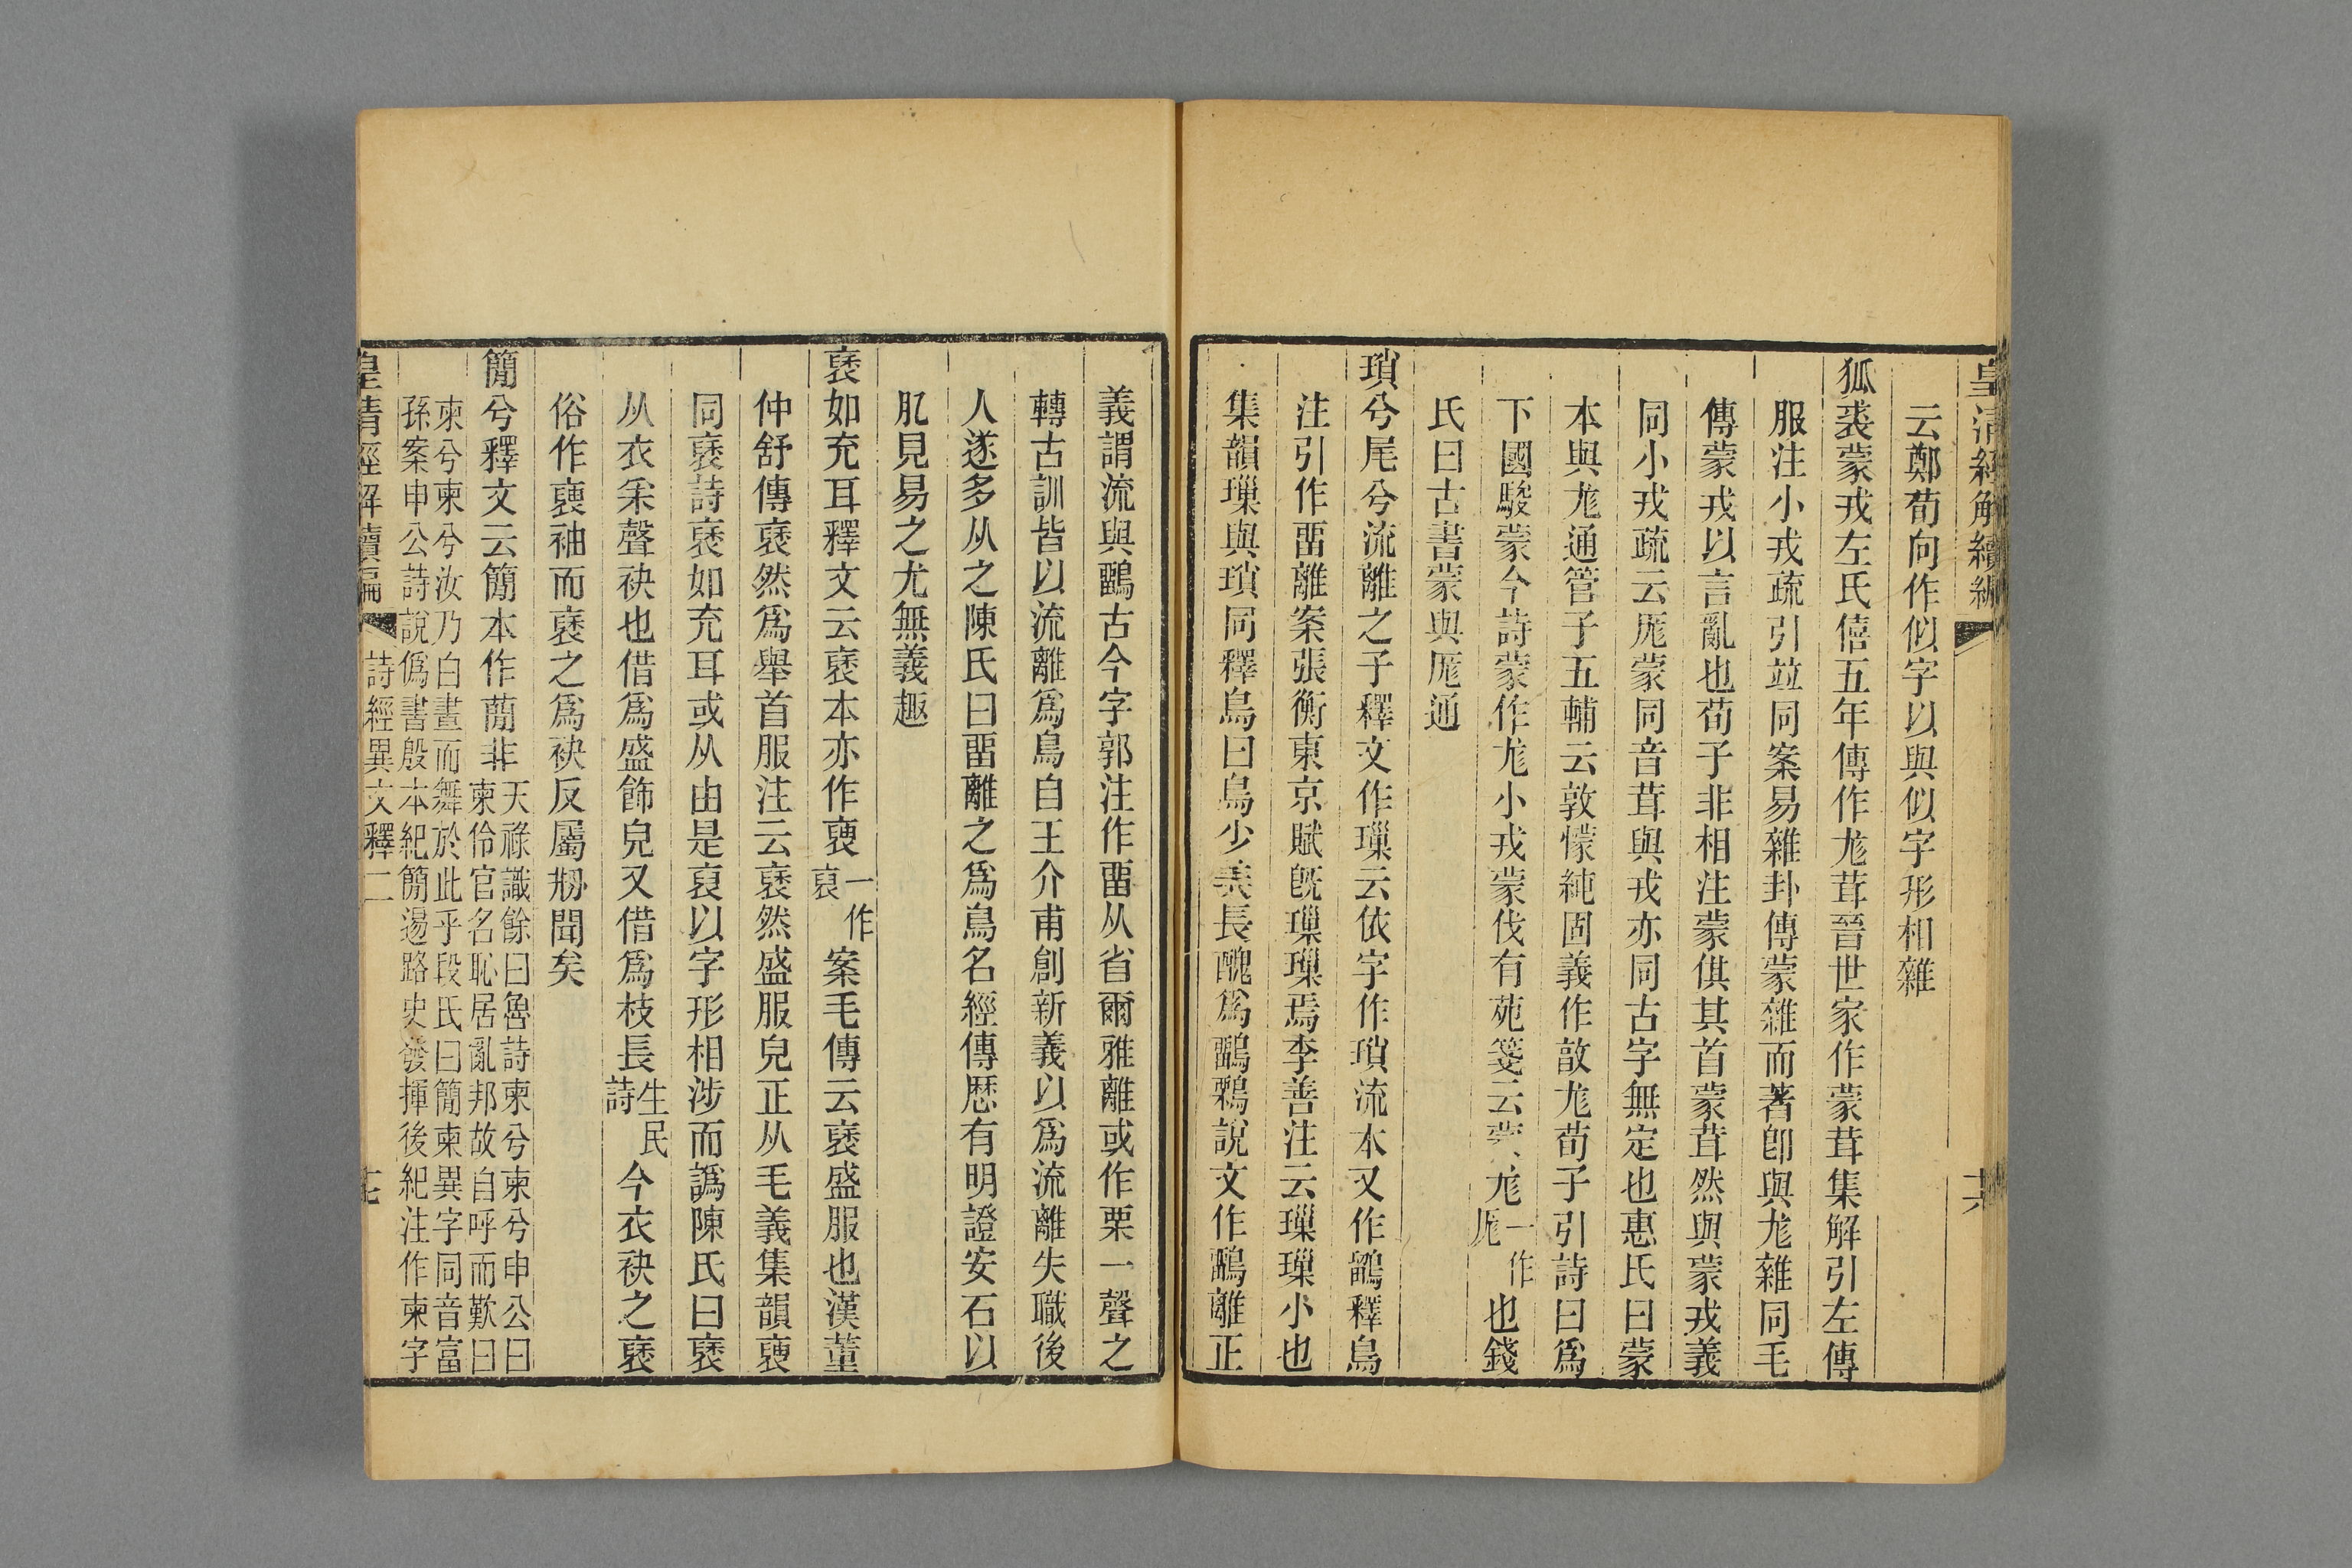 皇清經解續編
云鄭荀向作似字以與似字形相雜
狐裘蒙戎左氏僖五年傳作尨茸晉世家作蒙茸集解引左傳
服注小戎疏引竝同案易雜卦傳蒙雜而著卽與尨雜同毛
傳蒙戎以言亂也荀子非相注蒙倛其首蒙茸然與蒙戎義
同小戎疏云厖蒙同音茸與戎亦同古字無定也惠氏曰蒙
本與尨通管子五輔云敦懞純固義作敨尨荀子引詩曰爲
下國駿蒙今詩蒙作尨小戎蒙伐有苑箋云蒙尨一作厖也錢
氏曰古書蒙與厖通
瑣兮尾兮流離之子釋文作璅云依字作瑣流本又作鶹釋鳥
注引作畱離案張衡東京賦旣璅璅焉李善注云璅璅小也
集韻璅與瑣同釋鳥曰鳥少美長醜爲鶹鷅說文作鶹離正
義謂流與鶹古今字郭注作畱从省爾雅離或作栗一聲之
轉古訓皆以流離爲鳥自王介甫創新義以爲流離失職後
人遂多从之陳氏曰畱離之爲鳥名經傳歷有明證安石以
肊見易之尤無義趣
褎如充耳釋文云褎本亦作裦一作裒案毛傳云褎盛服也漢董
仲舒傳褎然爲舉首服注云褎然盛服皃正从毛義集韻裦
同褎詩褎如充耳或从由是裒以字形相涉而譌陳氏曰褎
从衣釆聲袂也借爲盛飾皃又借爲枝長生民詩今衣袂之褎
俗作裦袖而褎之爲袂反屬刱聞矣
簡兮釋文云簡本作蕑非天祿識餘曰魯詩柬兮柬兮申公曰
柬伶官名恥居亂邦故自呼而歎曰
柬兮柬兮汝乃白晝而舞於此乎段氏曰簡柬異字同音富
孫案申公詩說僞書殷本紀簡逷路史發揮後紀注作柬字
皇清經解續編
詩經異文釋二